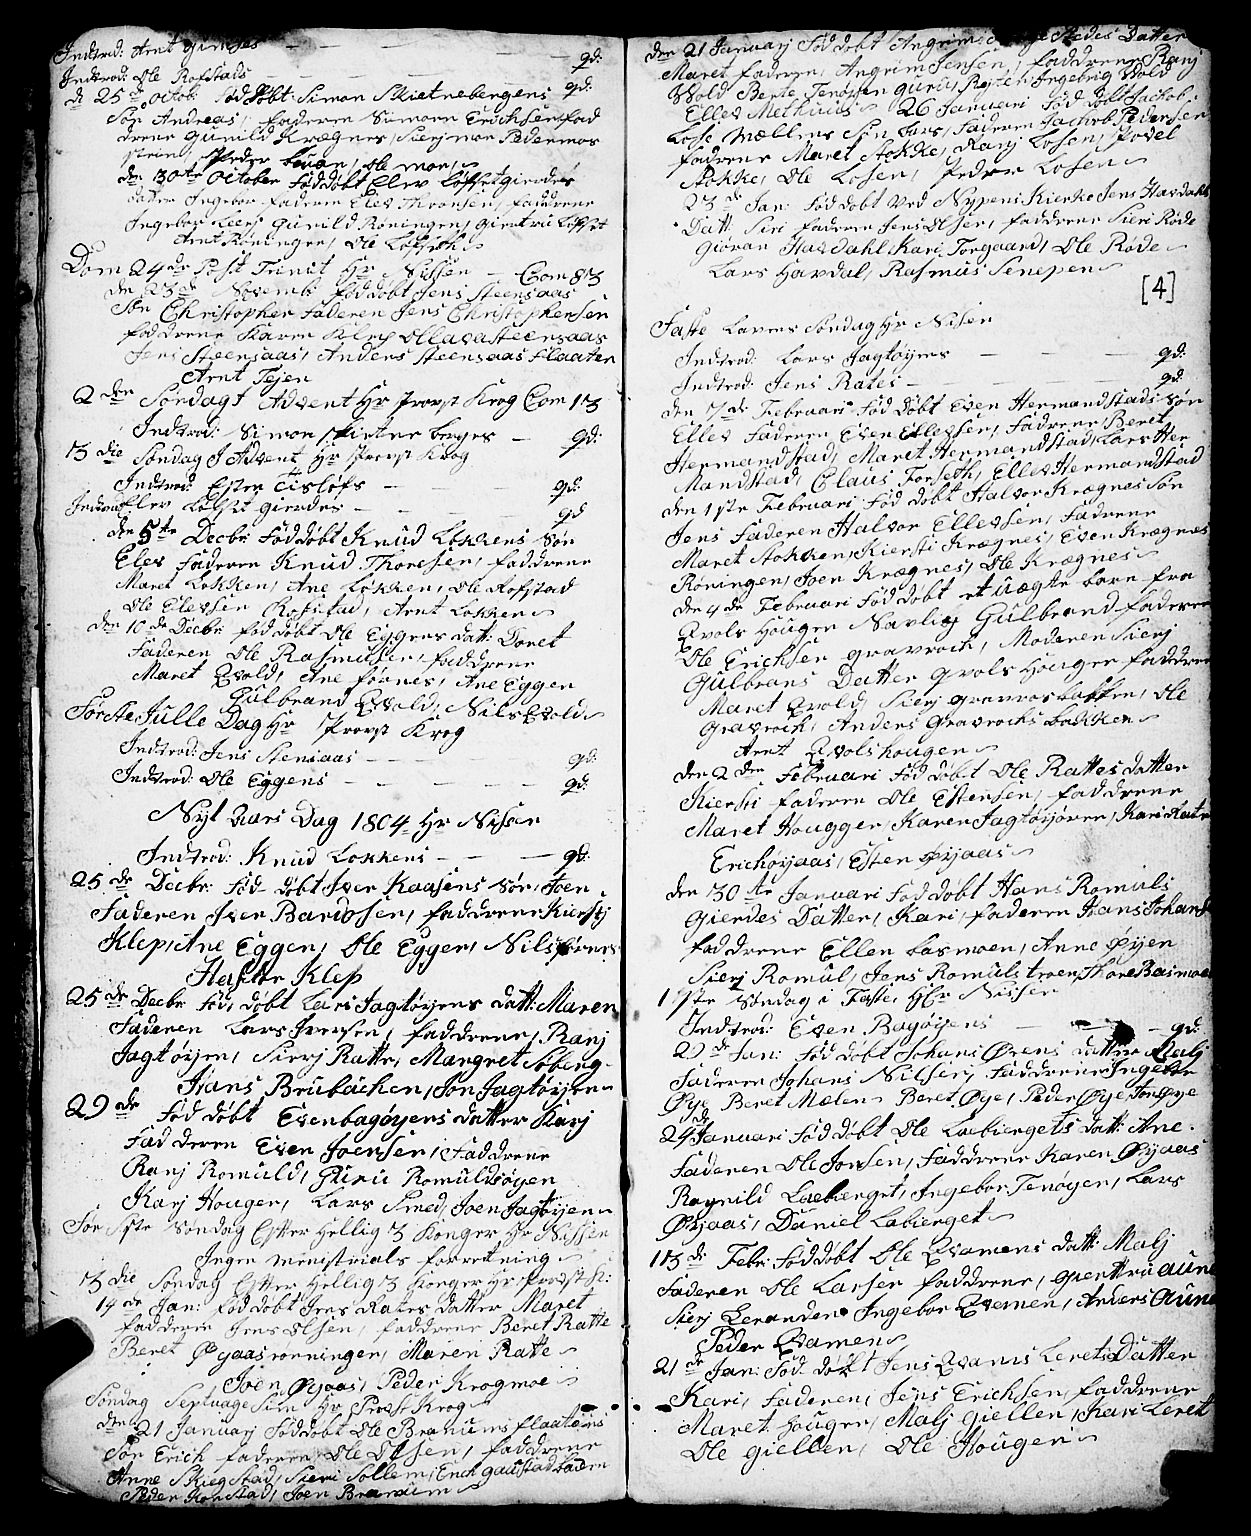 Indtrod: Arnt
Indtrod: Ole Rofstads — — — qd:
d 25de Octob. Fød Døbt Simon Skietnebergens qd:
Søn Andreas, faderen Simon Erichsen, fad
drene Gunild Krægnes, Sierj moe Peder mos
Peder Ole moe,
den 30te October Fød Døbt Elev Løkset gierdes
Datter Ingebor faderen Elev Thronsen, faddrene
Ingebor Leer, Gunild Roningen, Giertru Løkset
Arnt Roningen, Ole Løkset
Dom 24de Post Trinit Hr Nissen — Com 83
den 23de Novemb fød døbt Jens Steensaas
Søn Christopher Faderen Jens Christophersen
faddrene Karen Klep Olava Steensaas
Jens Steensaas, Anders Steensaas Flaaten
Arnt Tejen
2den Søndag I Advent Hr Provst Krog Com 13
Indtrod: Simon Skietne berges — qd:
3die Søndag I Advent Hr Provst Krog
Indtrod: Ester Tislefs — — qd:
Indtrod Elev Løkset gierdes — — — qd
den 5te Decbr Fød døbt Knud Løkkens Søn
Elev Faderen Knud Thoresen, faddrene
Maret Løkken, Ane Løkken, Ole Rofstad
Ole Elevsen Rofstad, Arnt Løkken
den 10de Decbr fød døbt Ole Eggens datt: Doret
Faderen Ole Rasmusen, faddrene
Maret Qvold, Ane førnes, Ane Eggen
Gulbrand Qvold, Nils Qvold
Første Julle Dag Hr Provst Krog
Indtrod: Jens Stensaas — — — qd:
Indtrod: Ole Eggens — — — qd:
Nyt aars Dag 1804 Hr Nissen
Indtrod: Knud Lokkens — — — qd:
25de Decbr: Fød døbt Iver Kaasens Søn Joen
Faderen Iver Bardosen, faddrene Kierstj
Klep, Ane Eggen, Ole Eggen, Nils førnes
Klep
25de Decbr Fød, døbt Lars Jagtøyens datt: Maren
Faderen Lars Iversen, faddrene, Ranj
Jagtøyen, Sierj Ratte, Margret Soberg
Hans Brubacken, Jon Jagtøyen
29de Fød døbt Even bagøyens datter Karj
Faderen Even Joensen, Faddrene
Ranj Romuld, Guru Romuldsøyen
Karj Houger, Lars Smed, Joen Jagtøyen
Før ste Søndag Efter Hellig 3 Konger Hr Nissen
Ingen ministrials forretning
3die Søndag Efter Hellig 3 Konger Hr Provst K:
14de Jan: fød døbt Jens Rates datter Maret
faderen Jens Olsen, faddrene Beret Ratte
Beret Øyaas rønningen, Maren Ratte
Joen Øyaas, Peder Krogmoe
Søndag Septuagesim Hr Provst Krog
den 21 Januarj Fød døbt Ole Bramens flaatens
Søn Erich faderen Ole Olsen, faddrene
Anne Skiegstad, Sierj Sollem, Erich gaustadbaken
Peder Korstad, Joen
den 21 Januarj Fød døbt Angrim Datter
Maret faderen, Angrim Jensen, faddrene Ranj
Wold Berte Tenøsen Guru Rejten Ingebrig Wold
Ellev Methuus 26 Januari Fød Døbt Jachob
Lose Mællens Søn Lars, Faderen Jachob Pedersen
faddrene Maret Stokke, Ranj Losen, Povel
Stokke, Ole Losen, Peder Losen
23de Jan: Fød døbt Ved Nypens Kierke Jens Havdahls
Datt: Siri faderen Jens Olsen, faddrene Sieri Røde
Gioran Havdahl Kari Torgaard, Ole Røde
Lars Havdal, Rasmus Senepen
[4]
Faste Lavens Søndag Hr Nisen
Indtrod: Lars Jagtøyens — — — qd:
Indtrod: Jens Rates — — — qd:
den 7de Februari Fød Døbt Even Hermandstads Søn
Ellev Faderen Even Ellevsen, Fadrene Beret
Hermandstad, Maret Hermandstad, Lars Her
Mandstad, Claus Forseth, Ellev Hermandstad
den 1ste Februari Fød Døbt Halvor Krægnes Søn
Jens Faderen Halvor Ellevsen, Fadrene
Maret Stokken, Kiersti Krægnes, Even Krægnes
Roningen, Joen Krægnes, Ole Krægnes
den 4de Februari Fød døbt et uægte barn fra
Qvols Hougen Navlig Gulbrand faderen
Ole Erichsen gravrock, Moderen Sierj
Gulbrans Datter Qvols Hougen faddrene
Maret Qvold, Sierj gravraasbakken, Ole
Gravroch, Anders Gravrochs bakken
Arnt Qvolshougen
den 2den Februari Fød Døbt Ole Rattes datter
Kiersti faderen Ole Estensen, faddrene
Maret Hougger, Karen Jagtøyoren, Kari Rate
Erich øyaas, Esten øyaas
den 30te Januari Fød døbt Hans Romuls
Gierdes Datter, Kari, faderen Hans Johans
faddrene Ellen basmoen, Anne Øyen
Sierj Romul, Jens Romulstroen, Thore Basmoe
1ste Søndag i Faste, Hr Nissen
Indtrod: Even Bagøyens — — — qd:
29de Jan: Fød Døbt Johans Ørens datter Malj
Faderen Johans Nilsen, Faddrene Ingebor
Øye Beret Mælen Beret Øye, Peder Øye Jon øye
24de Januari Fød Døbt Ole Labiergets datt: Ane.
Faderen Ole Jonsen, Faddrene Karen Øyaas
Raynild Labierget, Ingebor Tenøyen, Lars
Øyaas, Daniel Labierget
13de Febr. Fød døbt Ole Qvamens Datt: Malj
Faderen Ole Larsen faddrene, Giertru aune
Sierj Leranden Ingebor Qvemen, Anders Aune
Peder Qvamen
21de Jan: Fød døbt Jens Qvams Lerets Datter
Kari, Faderen, Jens Erichsen, faddrene
Maret Houger, Malj giellen, Kari Leret
Ole giellen, Ole Hougen